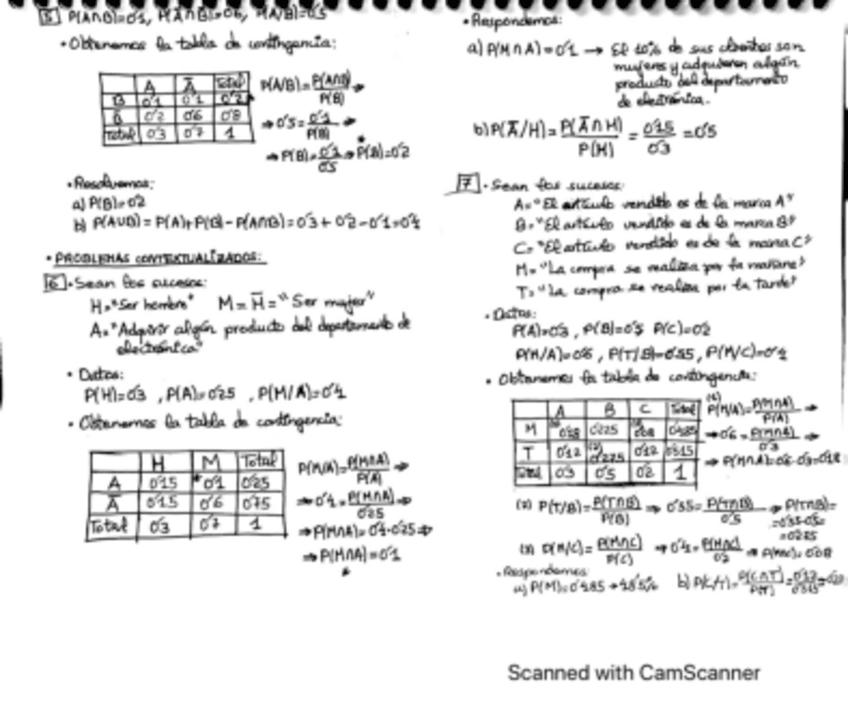 5 P(A∩B)=0'1, P(Ā∩B̄)=0'6, P(A/B)=0'5
• Obtenemos la tabla de contingencia:
A Ā Total
B 0'1 0'1 0'2
B̄ 0'2 0'6 0'8
Total 0'3 0'7 1
P(A/B)=P(A∩B)/P(B) ⇒
⇒ 0'5=0'1/P(B) ⇒
⇒ P(B)=0'1/0'5 ⇒ P(B)=0'2
• Resolvemos:
a) P(B)=0'2
b) P(A∪B)=P(A)+P(B)-P(A∩B)=0'3+0'2-0'1=0'4
• PROBLEMAS CONTEXTUALIZADOS:
6 • Sean los sucesos:
H="Ser hombre" M=H̄="Ser mujer"
A="Adquirir algún producto del departamento de
electrónica"
• Datos:
P(H)=0'3, P(A)=0'25, P(M/A)=0'4
• Obtenemos la tabla de contingencia:
H M Total
A 0'15 0'1 0'25
Ā 0'15 0'6 0'75
Total 0'3 0'7 1
P(M/A)=P(M∩A)/P(A) ⇒
⇒ 0'4=P(M∩A)/0'25 ⇒
⇒ P(M∩A)=0'4·0'25 ⇒
⇒ P(M∩A)=0'1
• Respondemos:
a) P(M∩A)=0'1 → El 10% de sus clientes son
mujeres y adquieren algún
producto del departamento
de electrónica.
b) P(Ā/H)=P(Ā∩H)/P(H)=0'15/0'3=0'5
7 • Sean los sucesos:
A="El artículo vendido es de la marca A"
B="El artículo vendido es de la marca B"
C="El artículo vendido es de la marca C"
M="La compra se realiza por la mañana"
T="La compra se realiza por la tarde"
• Datos:
P(A)=0'3, P(B)=0'5 P(C)=0'2
P(M/A)=0'6, P(T/B)=0'55, P(M/C)=0'4
• Obtenemos la tabla de contingencia:
A B C Total
M 0'18 0'225 0'08 0'485
T 0'12 0'275 0'12 0'515
Total 0'3 0'5 0'2 1
(1) P(M/A)=P(M∩A)/P(A) ⇒
⇒ 0'6=P(M∩A)/0'3 ⇒
⇒ P(M∩A)=0'6·0'3=0'18
(2) P(T/B)=P(T∩B)/P(B) ⇒ 0'55=P(T∩B)/0'5 ⇒ P(T∩B)=
=0'55·0'5=
=0'275
(3) P(M/C)=P(M∩C)/P(C) ⇒ 0'4=P(M∩C)/0'2 ⇒ P(M∩C)=0'08
• Respondemos:
a) P(M)=0'485 → 48'5% b) P(C/T)=P(C∩T)/P(T)=0'12/0'515
Scanned with CamScanner